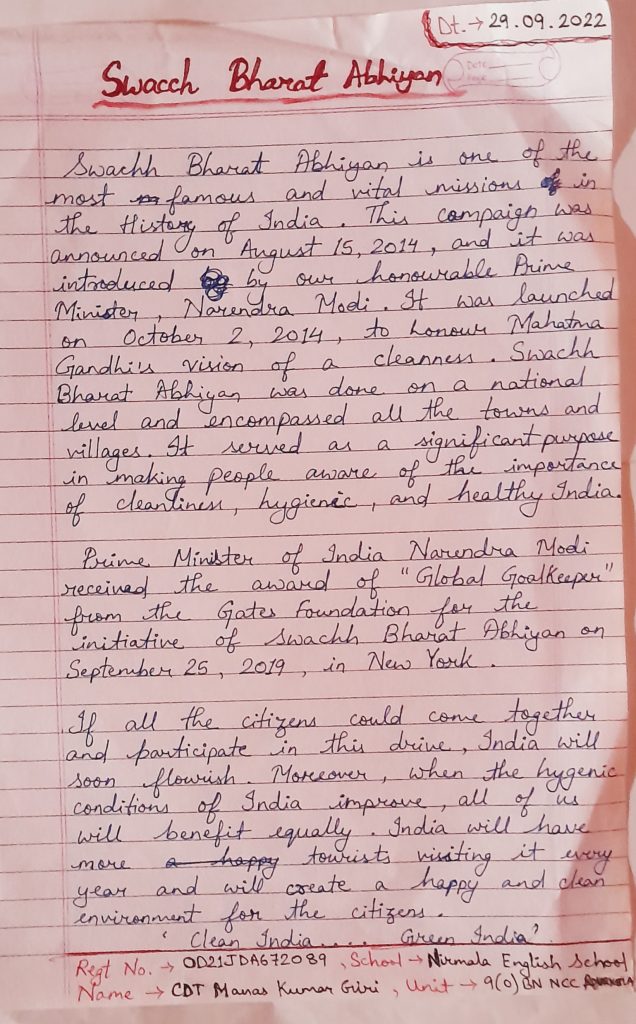 Dt. → 29.09.2022
Swacch Bharat Abhiyan
Date
Swachh Bharat Abhiyan is one of the
most famous and vital missions in
the History of India. This campaign was
announced on August 15, 2014, and it was
introduced by our honourable Prime
Minister, Narendra Modi. It was launched
on October 2, 2014, to honour Mahatma
Gandhi's vision of a cleanness. Swachh
Bharat Abhiyan was done on a national
level and encompassed all the towns and
villages. It served as a significant purpose
in making people aware of the importance
of cleanliness, hygienic, and healthy India.
Prime Minister of India Narendra Modi
received the award of "Global Goalkeeper"
from the Gates Foundation for the
initiative of Swachh Bharat Abhiyan on
September 25, 2019, in New York.
If all the citizens could come together
and participate in this drive, India will
soon flourish. Moreover, when the hygenic
conditions of India improve, all of us
will benefit equally. India will have
more a happy tourists visiting it every
year and will create a happy and clean
environment for the citizens.
' Clean India..... Green India'
Regt No. → OD21JDA672089, School → Nirmala English School
Name → CDT Manas Kumar Giri, Unit → 9(O) BN NCC